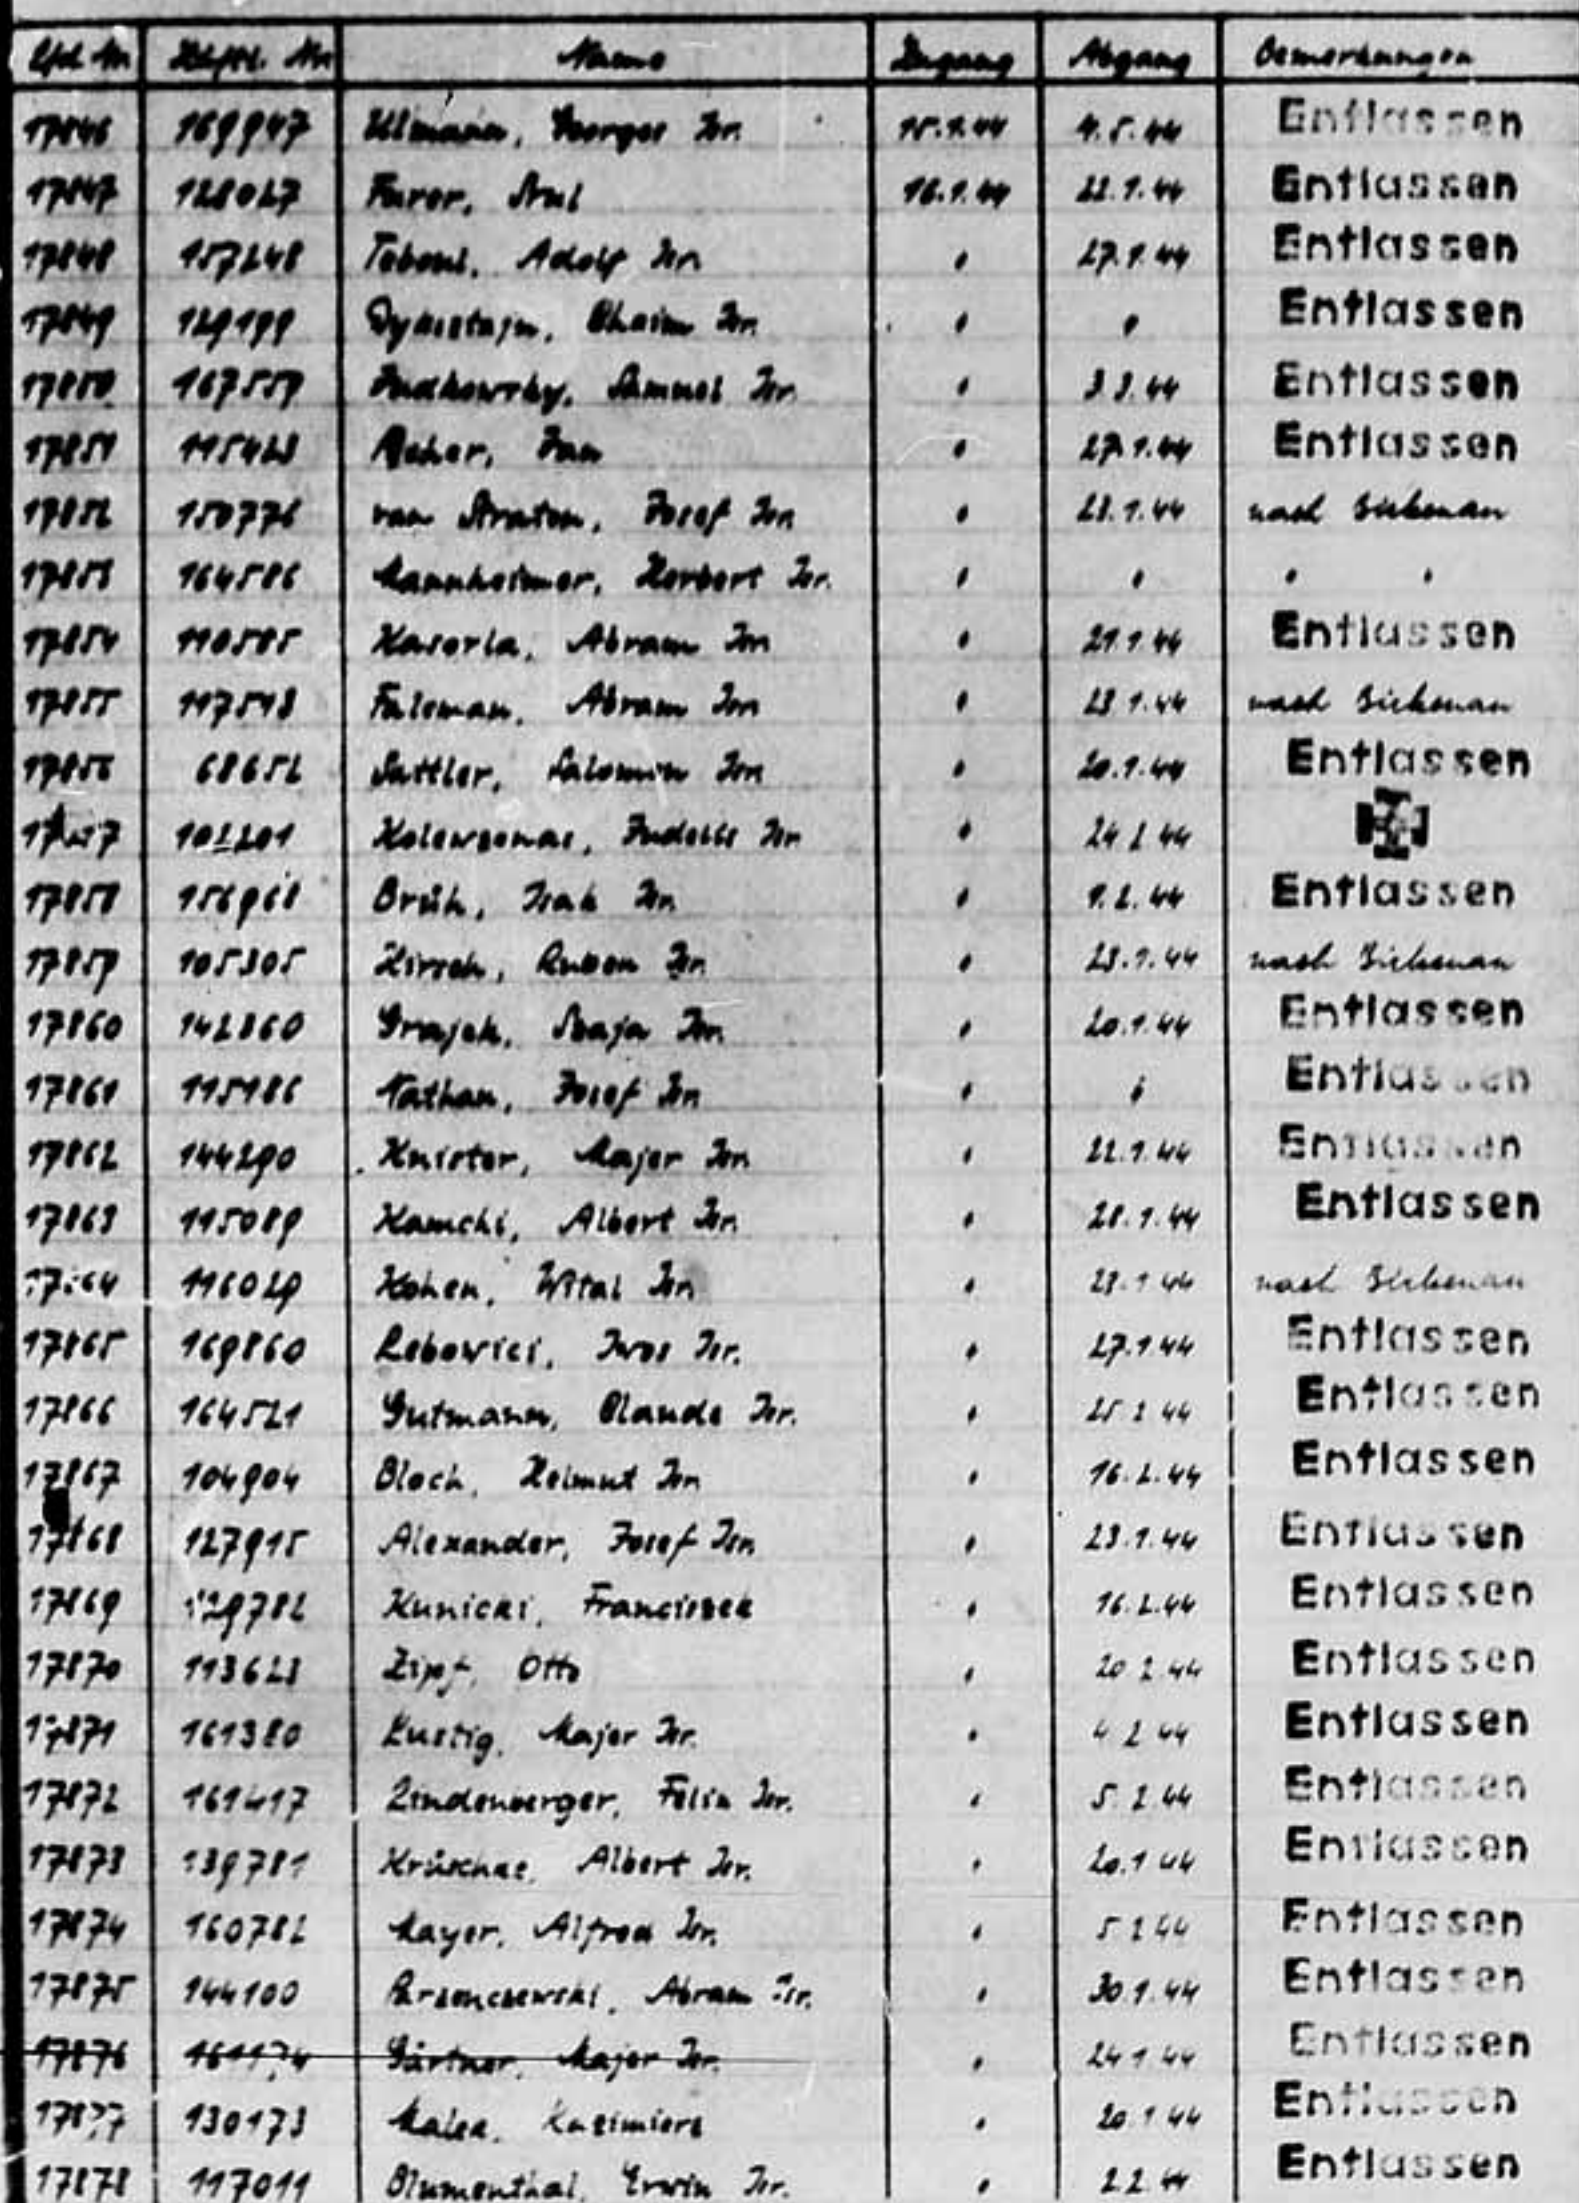 Lfd. Nr. Häftl. Nr. Name Zugang Abgang Bemerkungen
17846 169947 Ullmann, Georges Isr. 15.1.44 4.5.44 Entlassen
17847 128027 Furer, 16.1.44 22.1.44 Entlassen
17848 157248 Teboul, Adolf Isr. " 27.1.44 Entlassen
17849 129199 Dymsztajn, Chaim Isr. " " Entlassen
17850 167557 Judkowsky, Samuel Isr. " 3.3.44 Entlassen
17851 115423 Ascher, " 27.1.44 Entlassen
17852 150776 van Straten, Josef Isr. " 23.1.44 nach Birkenau
17853 164586 Mannheimer, Herbert Isr. " " " "
17854 110585 Kasorla, Abram Isr. " 21.1.44 Entlassen
17855 117513 Fuleman, Abram Isr. " 23.1.44 nach Birkenau
17856 68652 Sattler, Salomon Isr. " 20.1.44 Entlassen
17857 102201 Isr. " 24.2.44
17858 156968 Brüh, Isak Isr. " 1.2.44 Entlassen
17859 105305 Hirsch, Ruben Isr. " 23.1.44 nach Birkenau
17860 142860 Grajek, Szaja Isr. " 20.1.44 Entlassen
17861 115186 Nathan, Josef Isr. " " Entlassen
17862 144290 Knister, Majer Isr. " 22.1.44 Entlassen
17863 115089 Kamchi, Albert Isr. " 28.1.44 Entlassen
17864 116029 Kohen, Wital Isr. " 23.1.44 nach Birkenau
17865 169860 Lebovici, Isr. " 27.1.44 Entlassen
17866 164521 Gutmann, Claude Isr. " 25.2.44 Entlassen
17867 104904 Bloch, Helmut Isr. " 16.2.44 Entlassen
17868 127915 Alexander, Josef Isr. " 23.1.44 Entlassen
17869 129782 Kunicki, Franciszek " 16.2.44 Entlassen
17870 113623 Zipf, Otto " 20.2.44 Entlassen
17871 161380 Lustig, Majer Isr. " 4.2.44 Entlassen
17872 161417 Lindenberger, Felix Isr. " 5.2.44 Entlassen
17873 139781 Albert Isr. " 20.1.44 Entlassen
17874 160782 Mayer, Alfred Isr. " 5.2.44 Entlassen
17875 144100 Abram Isr. " 30.1.44 Entlassen
17876 161174 Gärtner, Majer Isr. " 24.1.44 Entlassen
17877 130173 Kazimierz " 20.1.44 Entlassen
17878 117011 Blumenthal, Erwin Isr. " 2.2.44 Entlassen